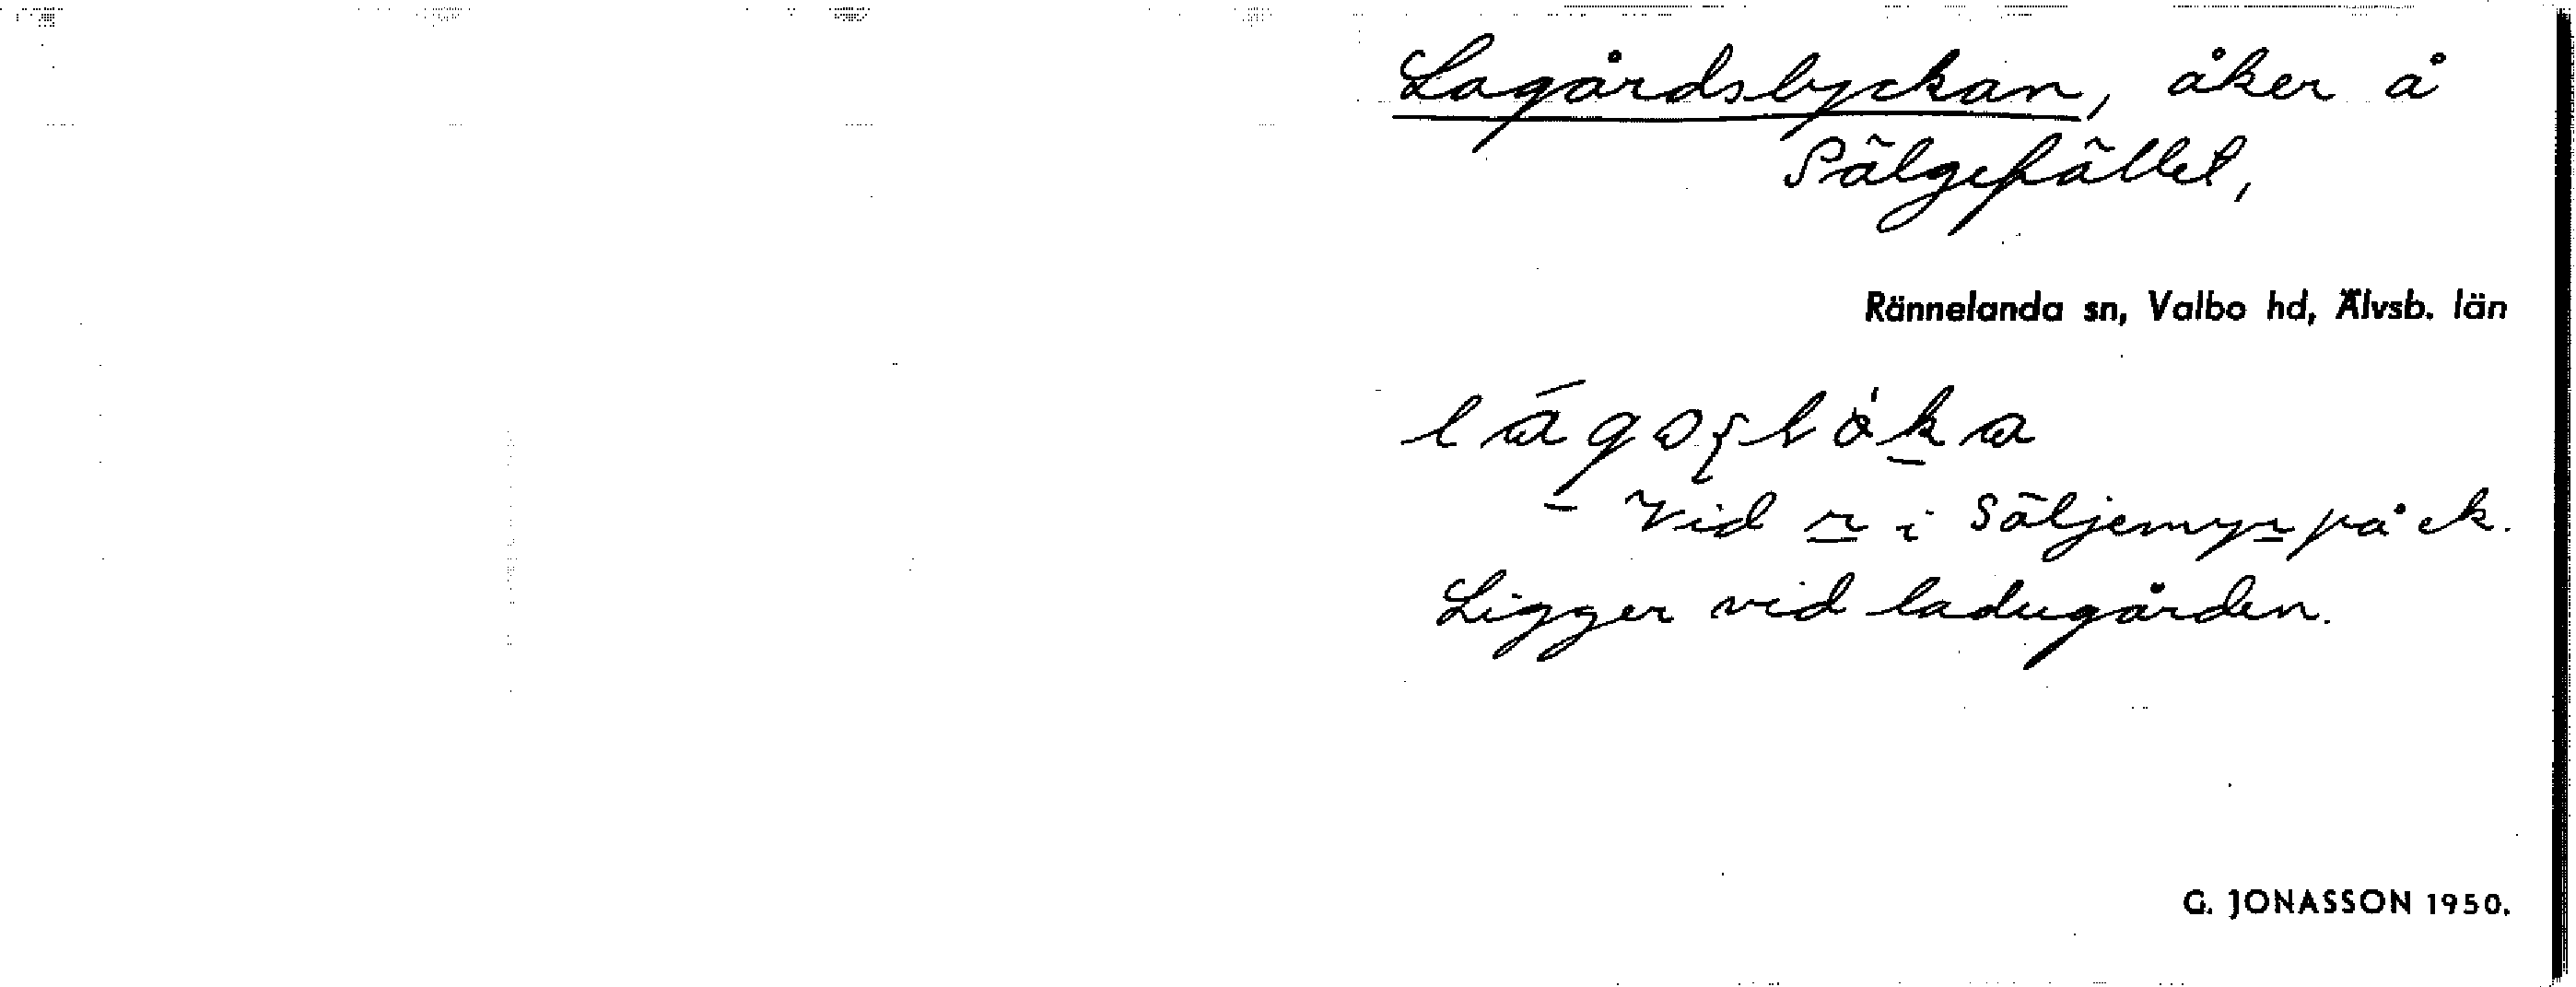 Lagårdsbyckan, åker å
Sälgefället,
Rännelanda sn, Valbo hd, Älvsb. län
Vid r i Säljemyr på ek.
Ligger vid ladugården.
G. JONASSON 1950.